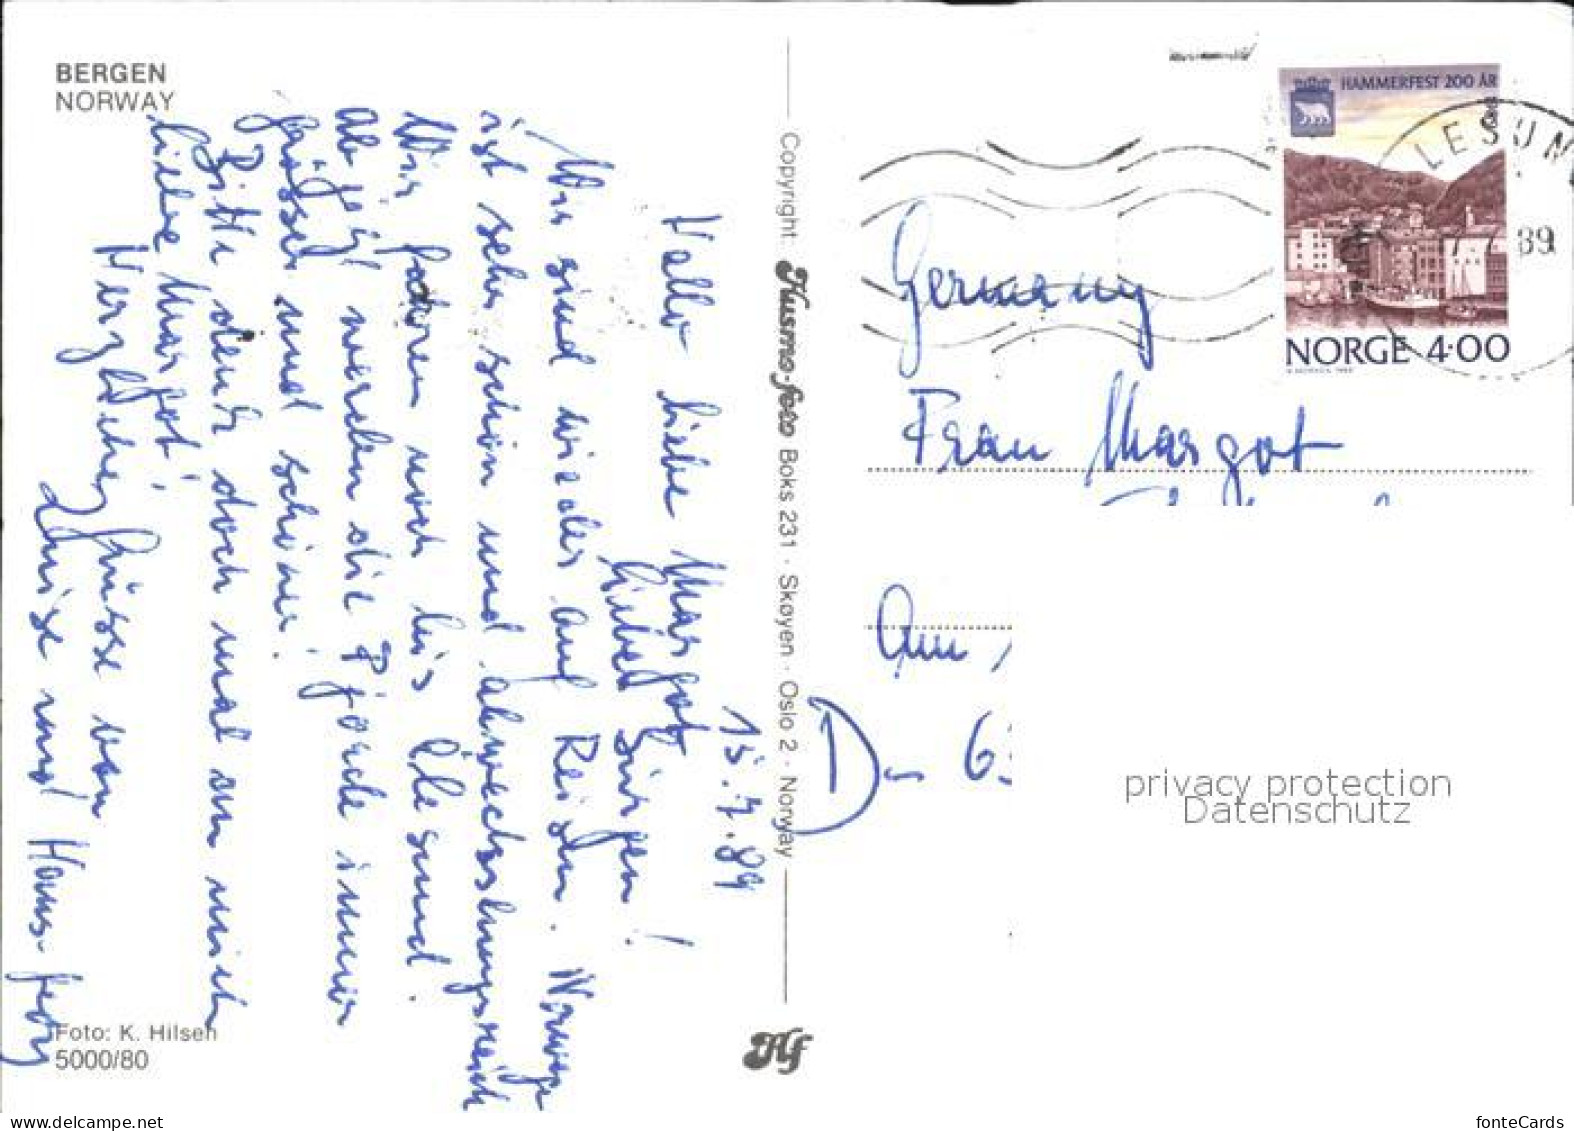 BERGEN
NORWAY
15.7.89
Hallo liebe Margot
lieber Jürgen!
Wir sind wieder auf Reisen. Norwege
ist sehr schön und abwechslungsreich
Wir fahren noch bis Ålesund.
Ab jetzt werden die Fjorde immer
grösser und schöner.
Bitte denk doch mal an mich
liebe Margot!
Herzliche Grüsse von
Luise und Hans-
Foto: K. Hilsen
5000/80
Copyright: Husmo-foto Boks 231 · Skøyen · Oslo 2 · Norway
Hf
HAMMERFEST 200 ÅR
1989
NORGE 4·00
LESUN
7 89
Germany
Frau Margot
Am
D - 6
privacy protection
Datenschutz
www.delcampe.net
fonteCards